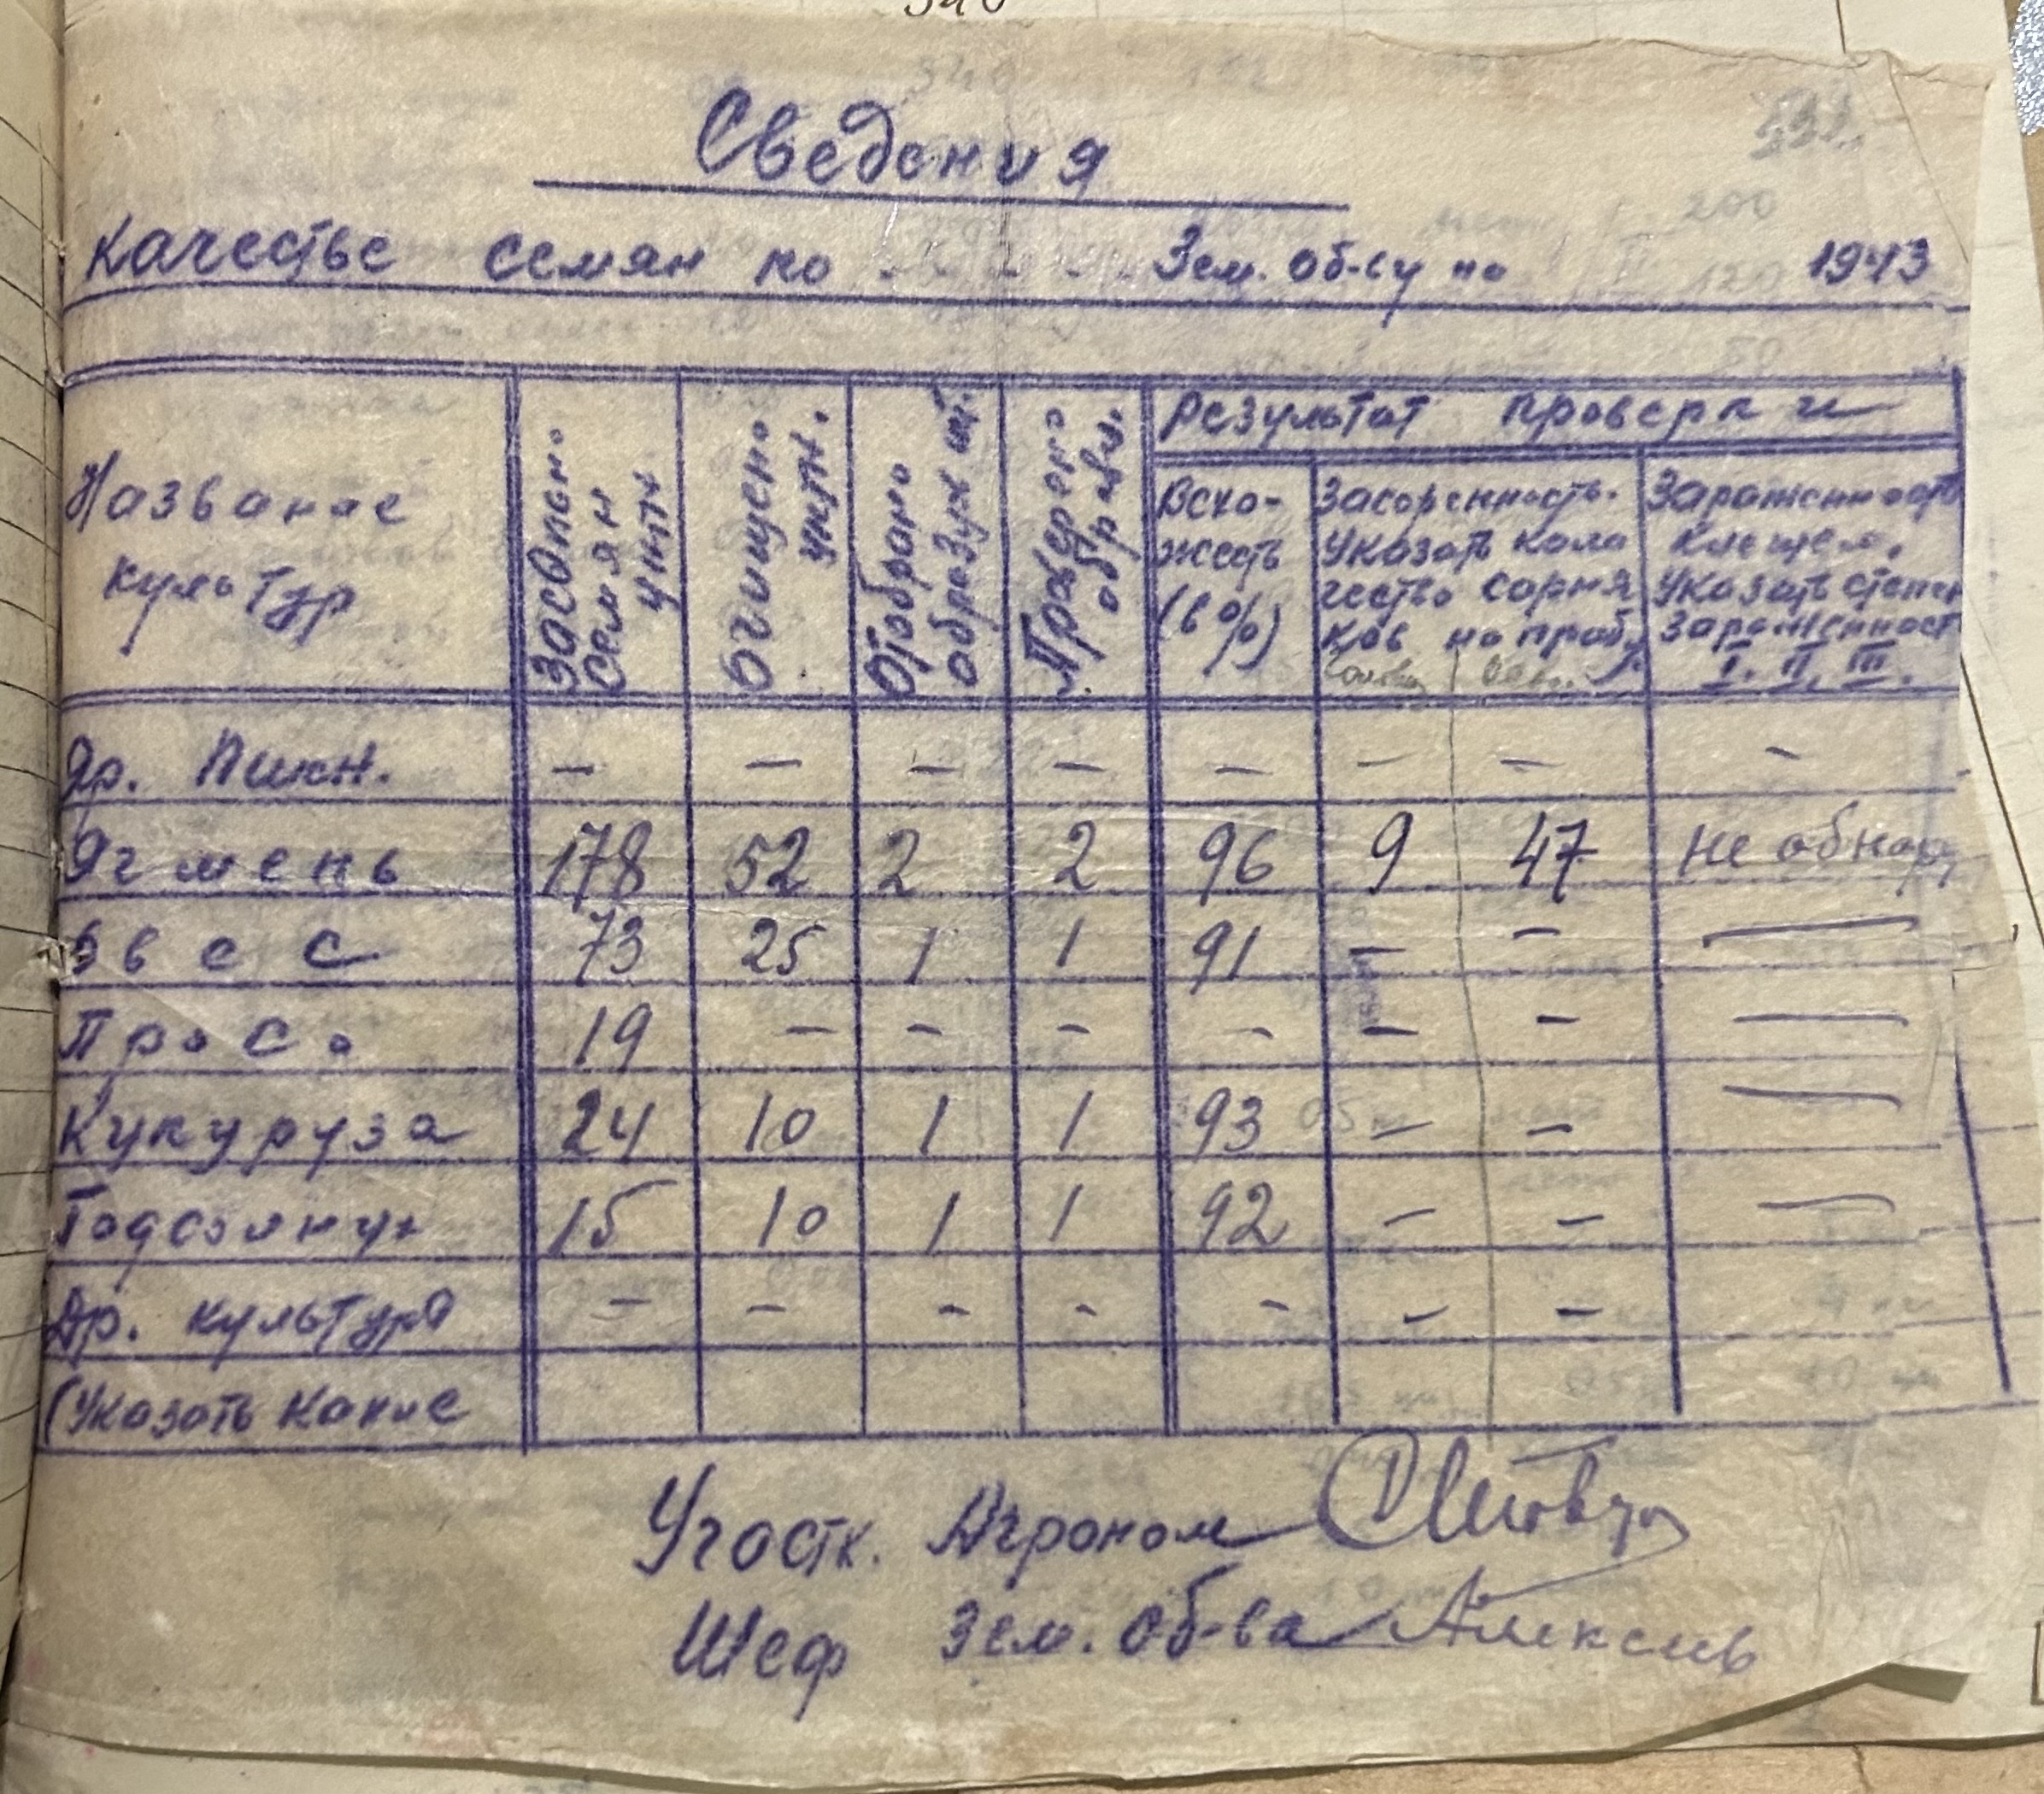 Сведения
качестве семян по Зем. об-су на 1943
Название культур
Засыпано семян унтн
Очищено унтн.
Отобрано образцов шт.
Проверено образц.
Результат проверки
Всхожесть (в %)
Засоренность. Указать коли
чество сорня
ков на пробу
Зараженность
клещем.
Указать степен
зараженност
I. II. III.
Яр. пшен. — — — — — — — —
Ячмень 178 52 2 2 96 9 47 не обнар
Овес 73 25 1 1 91 — — —
Просо 19 — — — — — — —
Кукуруза 24 10 1 1 93 — — —
Подсолнух 15 10 1 1 92 — — —
Др. культуры — — — — — — —
(Указать какие
Участк. Агроном
Шеф Зем. об-ва Алексеев